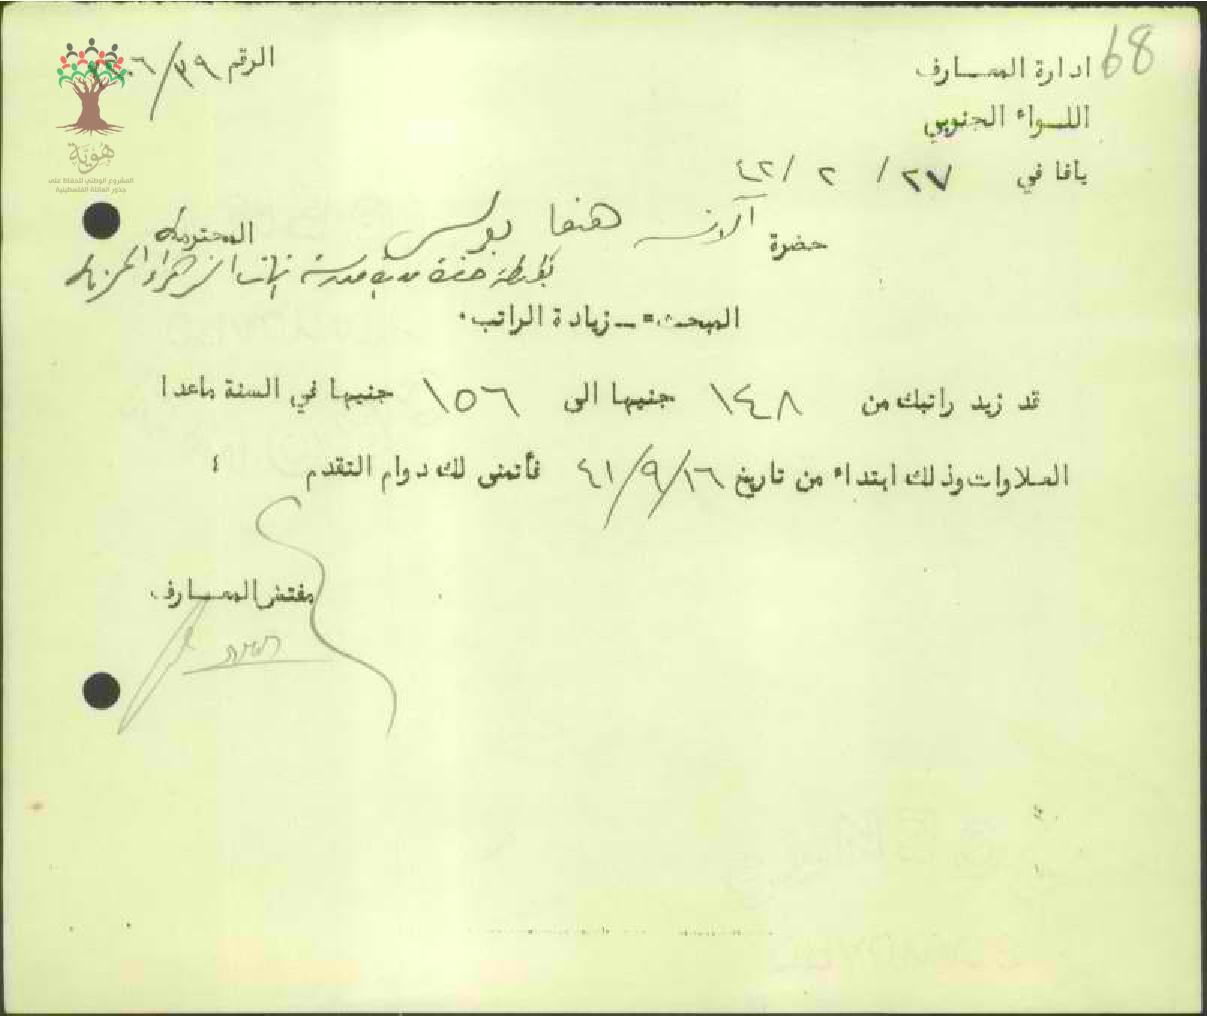 68
ادارة المعارف
الرقم ٣٩/
اللواء الجنوبي
يافا في ٢٧ / ٢ / ٤٢
هوية
المشروع الوطني للحفاظ على
جذور العائلة الفلسطينية
حضرة الآنسة هنفا بولس المحترمة
بواسطة حضرة مديرة مدرسة الزهراء المحترمة
المبحث :- زيادة الراتب .
قد زيد راتبك من ١٤٨ جنيها الى ١٥٦ جنيها في السنة ماعدا
العلاوات وذلك ابتداء من تاريخ ١٦/٩/٤١ فأتمنى لك دوام التقدم ؛
مفتش المعارف